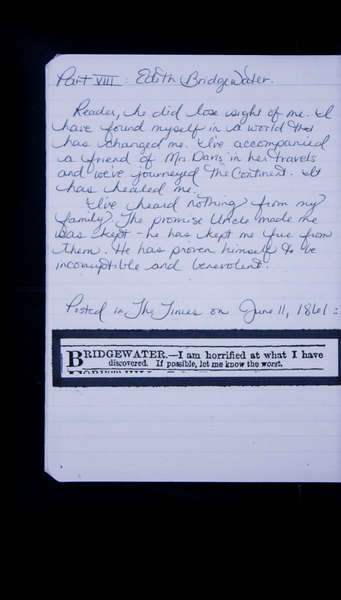 Part VIII : Edith Bridgewater.
Reader, he did lose sight of me. I
have found myself in a world that
has changed me. I've accompanied
a friend of Mrs Davis in her travels
and we've journeyed the Continent. It
has healed me.
I've heard nothing from my
family. The promise Uncle made me
was kept - he has kept me free from
them. He has proven himself to be
incorruptible and benevolent.
Posted in The Times on June 11, 1861 :
BRIDGEWATER.—I am horrified at what I have
discovered. If possible, let me know the worst.